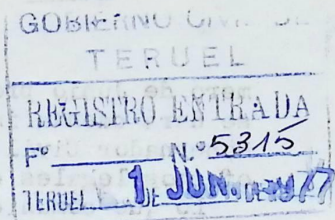 GOBIERNO CIVIL DE
TERUEL
REGISTRO ENTRADA
Fº N.º 5315
TERUEL 1 DE JUN. DE 1977